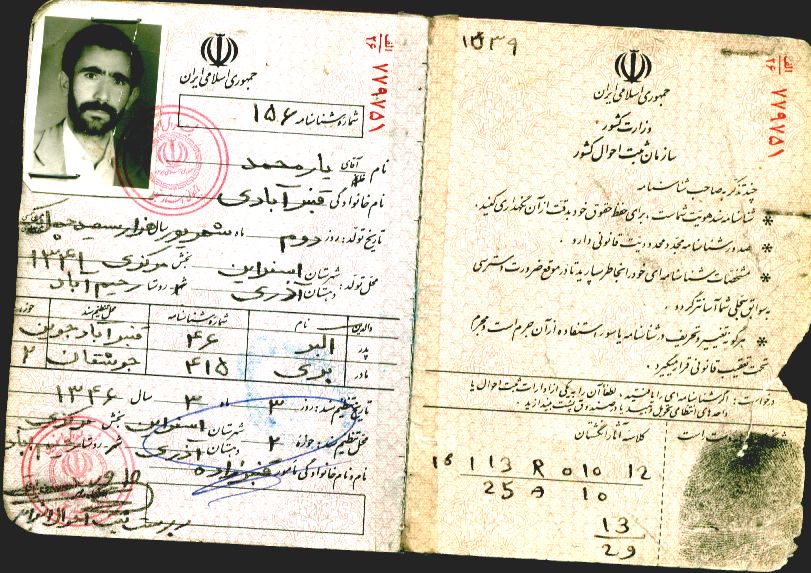 الف
۲۶
۷۷۹۷۵۱
جمهوری اسلامی ایران
شماره شناسنامه ۱۵۶
نام آقای یار محمد
نام خانوادگی قنبر آبادی
تاریخ تولد: روز دوم ماه شهریور سال هزار و سیصد و چهل
۱۳۴۱
محل تولد: شهرستان اسفراین بخش مرکزی
دهستان آذری شهر روستا رحیم آباد
والدین نام شماره شناسنامه محل تنظیم سند حوزه
پدر اکبر ۴۶ قنبر آباد جوین
مادر پری ۴۱۵ جوشقان ۲
تاریخ تنظیم سند: روز ۳ ماه ۳ سال ۱۳۴۶
محل تنظیم سند: حوزه ۲ شهرستان اسفراین بخش مرکزی
دهستان آذری شهر روستا رحیم آباد
نام و نام خانوادگی مامور
الف
۲۶
۷۷۹۷۵۱
جمهوری اسلامی ایران
وزارت کشور
سازمان ثبت احوال کشور
چند تذکر به صاحب شناسنامه
* شناسنامه سند هویت شماست، برای حفظ حقوق خود بدقت از آن نگهداری کنید.
* صدور شناسنامه مجدد محدودیت قانونی دارد.
* مشخصات شناسنامه ای خود را بخاطر بسپارید تا در موقع ضرورت دسترسی
به سوابق سجلی شما آسانتر گردد.
* هرگونه تغییر و تحریف در شناسنامه یا سوء استفاده از آن جرم است و مجرم
تحت تعقیب قانونی قرار میگیرد.
درخواست: اگر شناسنامه ای را یافتید، لطفاً آن را به یکی از ادارات ثبت احوال یا
واحدهای انتظامی تحویل دهید یا در صندوق پست بیندازید.
کلاسه آثار انگشتان
16 113 R 010 12
25 A 10
13
29